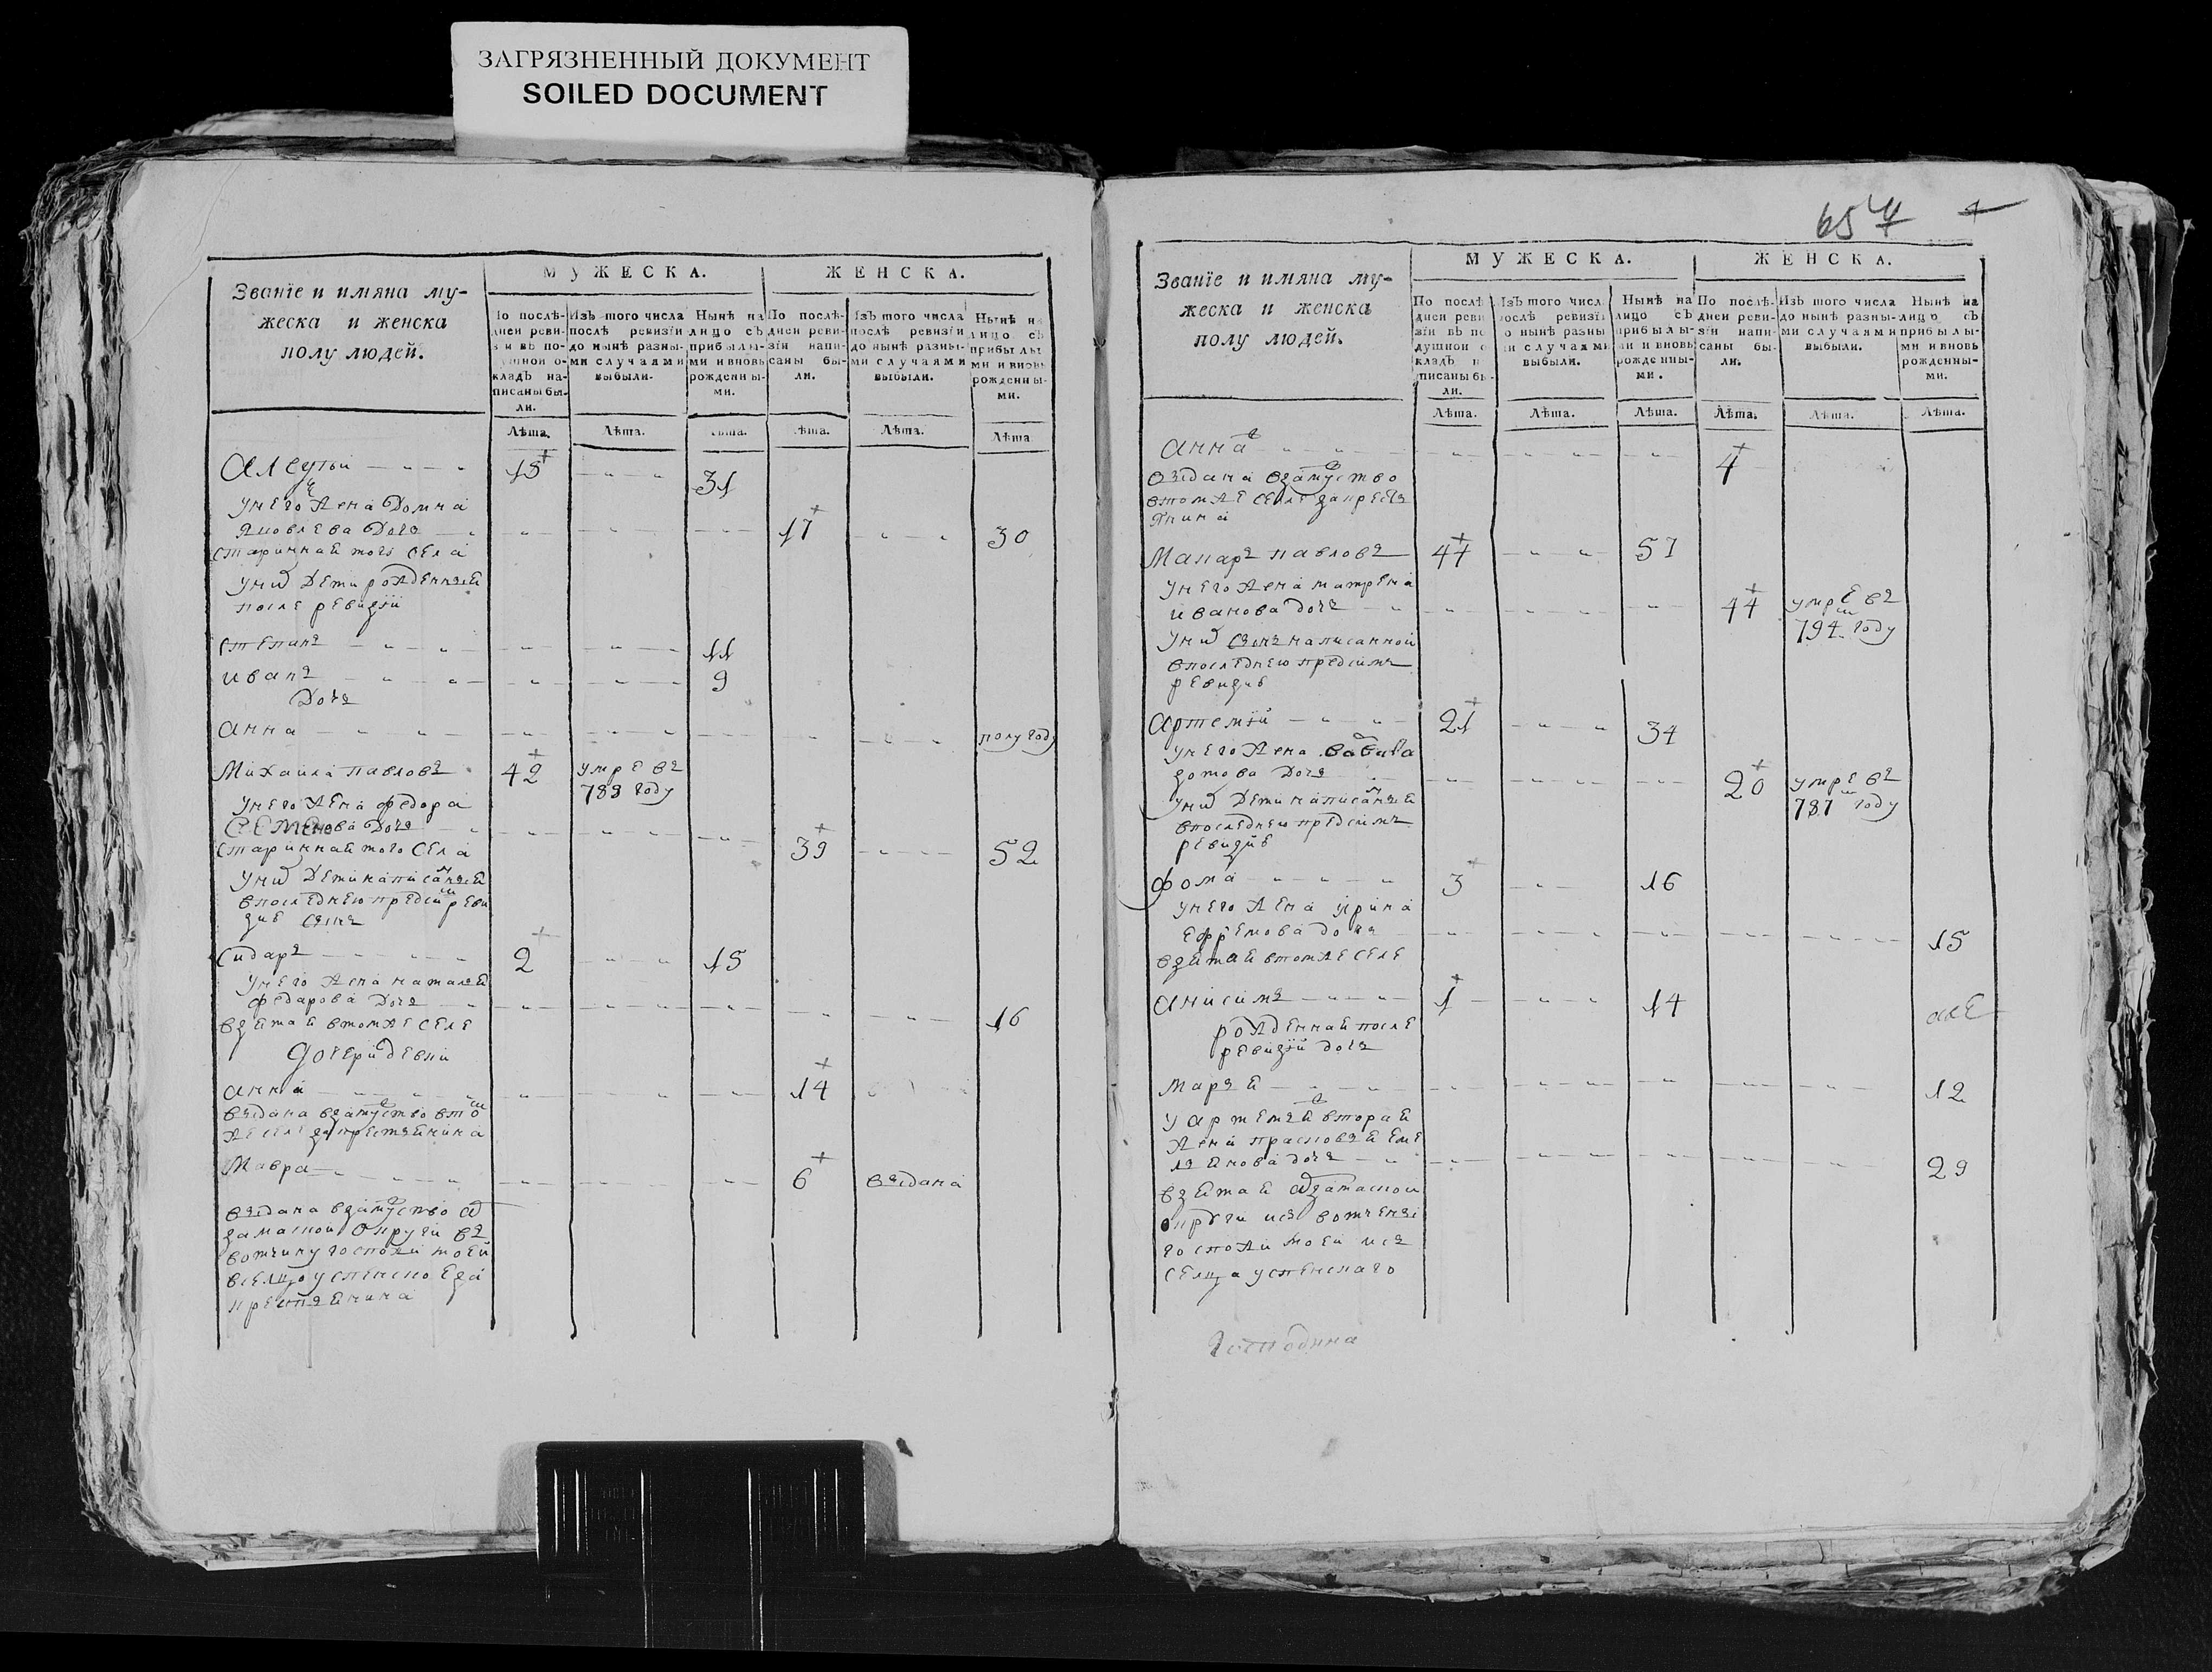 ЗАГРЯЗНЕННЫЙ ДОКУМЕНТ
SOILED DOCUMENT
Званїе и имяна му-
жеска и женска
полу людей.
МУЖЕСКА.
ЖЕНСКА.
По послѣ-
дней реви-
зіи въ по-
душной о-
кладъ на-
писаны бы-
ли.
Изъ того числа
послѣ ревизїи
до нынѣ разны-
ми случаями
выбыли.
Нынѣ на
лицо съ
прибылы-
ми и вновь
рожденны-
ми.
По послѣ-
дней реви-
зїи напи-
саны бы-
ли.
Изъ того числа
послѣ ревизїи
до нынѣ разны-
ми случаями
выбыли.
Нынѣ на
лицо съ
прибылы
ми и вновь
рожденны-
ми.
Лѣта. Лѣта. Лѣта. Лѣта. Лѣта. Лѣта.
15 31
унего жена Домна
яковлева дочь 17 30
стариннаѣ того села
униѿ дети рожденныѣ
после ревизїи
степанъ 11
иванъ 9
дочь
анна полу году
Михаила павловъ 42 умре въ
783 году
унего жена федора
семенова дочь
стариннаѣ того села 39 52
униѿ дети написаныѣ
впоследнею предсим реви
зие сынъ
сидаръ 2 15
унего жена наталья
федарова дочь
взѣтаѣ втомже селе 16
дочери девки
анна 14
выдана взамуство втом
же селе за крестьянина
Мавра 6 выдана
выдана взамуство
округи въ
вотчину госпожи моей
вселцо успенское за
крестьянина
654
Званїе и имяна му-
жеска и женска
полу людей.
МУЖЕСКА.
ЖЕНСКА.
По послѣ
дней реви
зїи въ по
душной о
кладъ н
писаны бы-
ли.
Изъ того числ
послѣ ревизїи
до нынѣ разны
ми случаями
выбыли.
Нынѣ на
лицо съ
прибылы-
ми и вновь
рожденны-
ми.
По послѣ-
дней реви-
зїи напи-
саны бы-
ли.
Изъ того числа
до нынѣ разны-
ми случаями
выбыли.
Нынѣ на
лицо съ
прибылы-
ми и вновь
рожденны-
ми.
Лѣта. Лѣта. Лѣта. Лѣта. Лѣта. Лѣта.
анна 4
выдана взамуство
втомже селе за крестья
нина
Макаръ павловъ 47 57
унего жена матрена
иванова дочь 44 умре въ
794 году
униѿ сынъ написанной
впоследнею предсимъ
ревизие
артемїй 21 34
унего жена
зотова дочь 20 умре въ
787 году
униѿ дети написаныѣ
впоследнею предсимъ
ревизие
фома 3 16
унего жена ирина
ефремова дочь 15
взѣтаѣ втомже селе
анисимъ 1 14
рожденнаѣ после
ревизїи дочь
марьѣ 12
у артемьѣ втораѣ
жена прасковьѣ еме
льѣнова дочь 29
взѣтаѣ
округи изъ вотчины
госпожи моей изъ
селца успенскаго